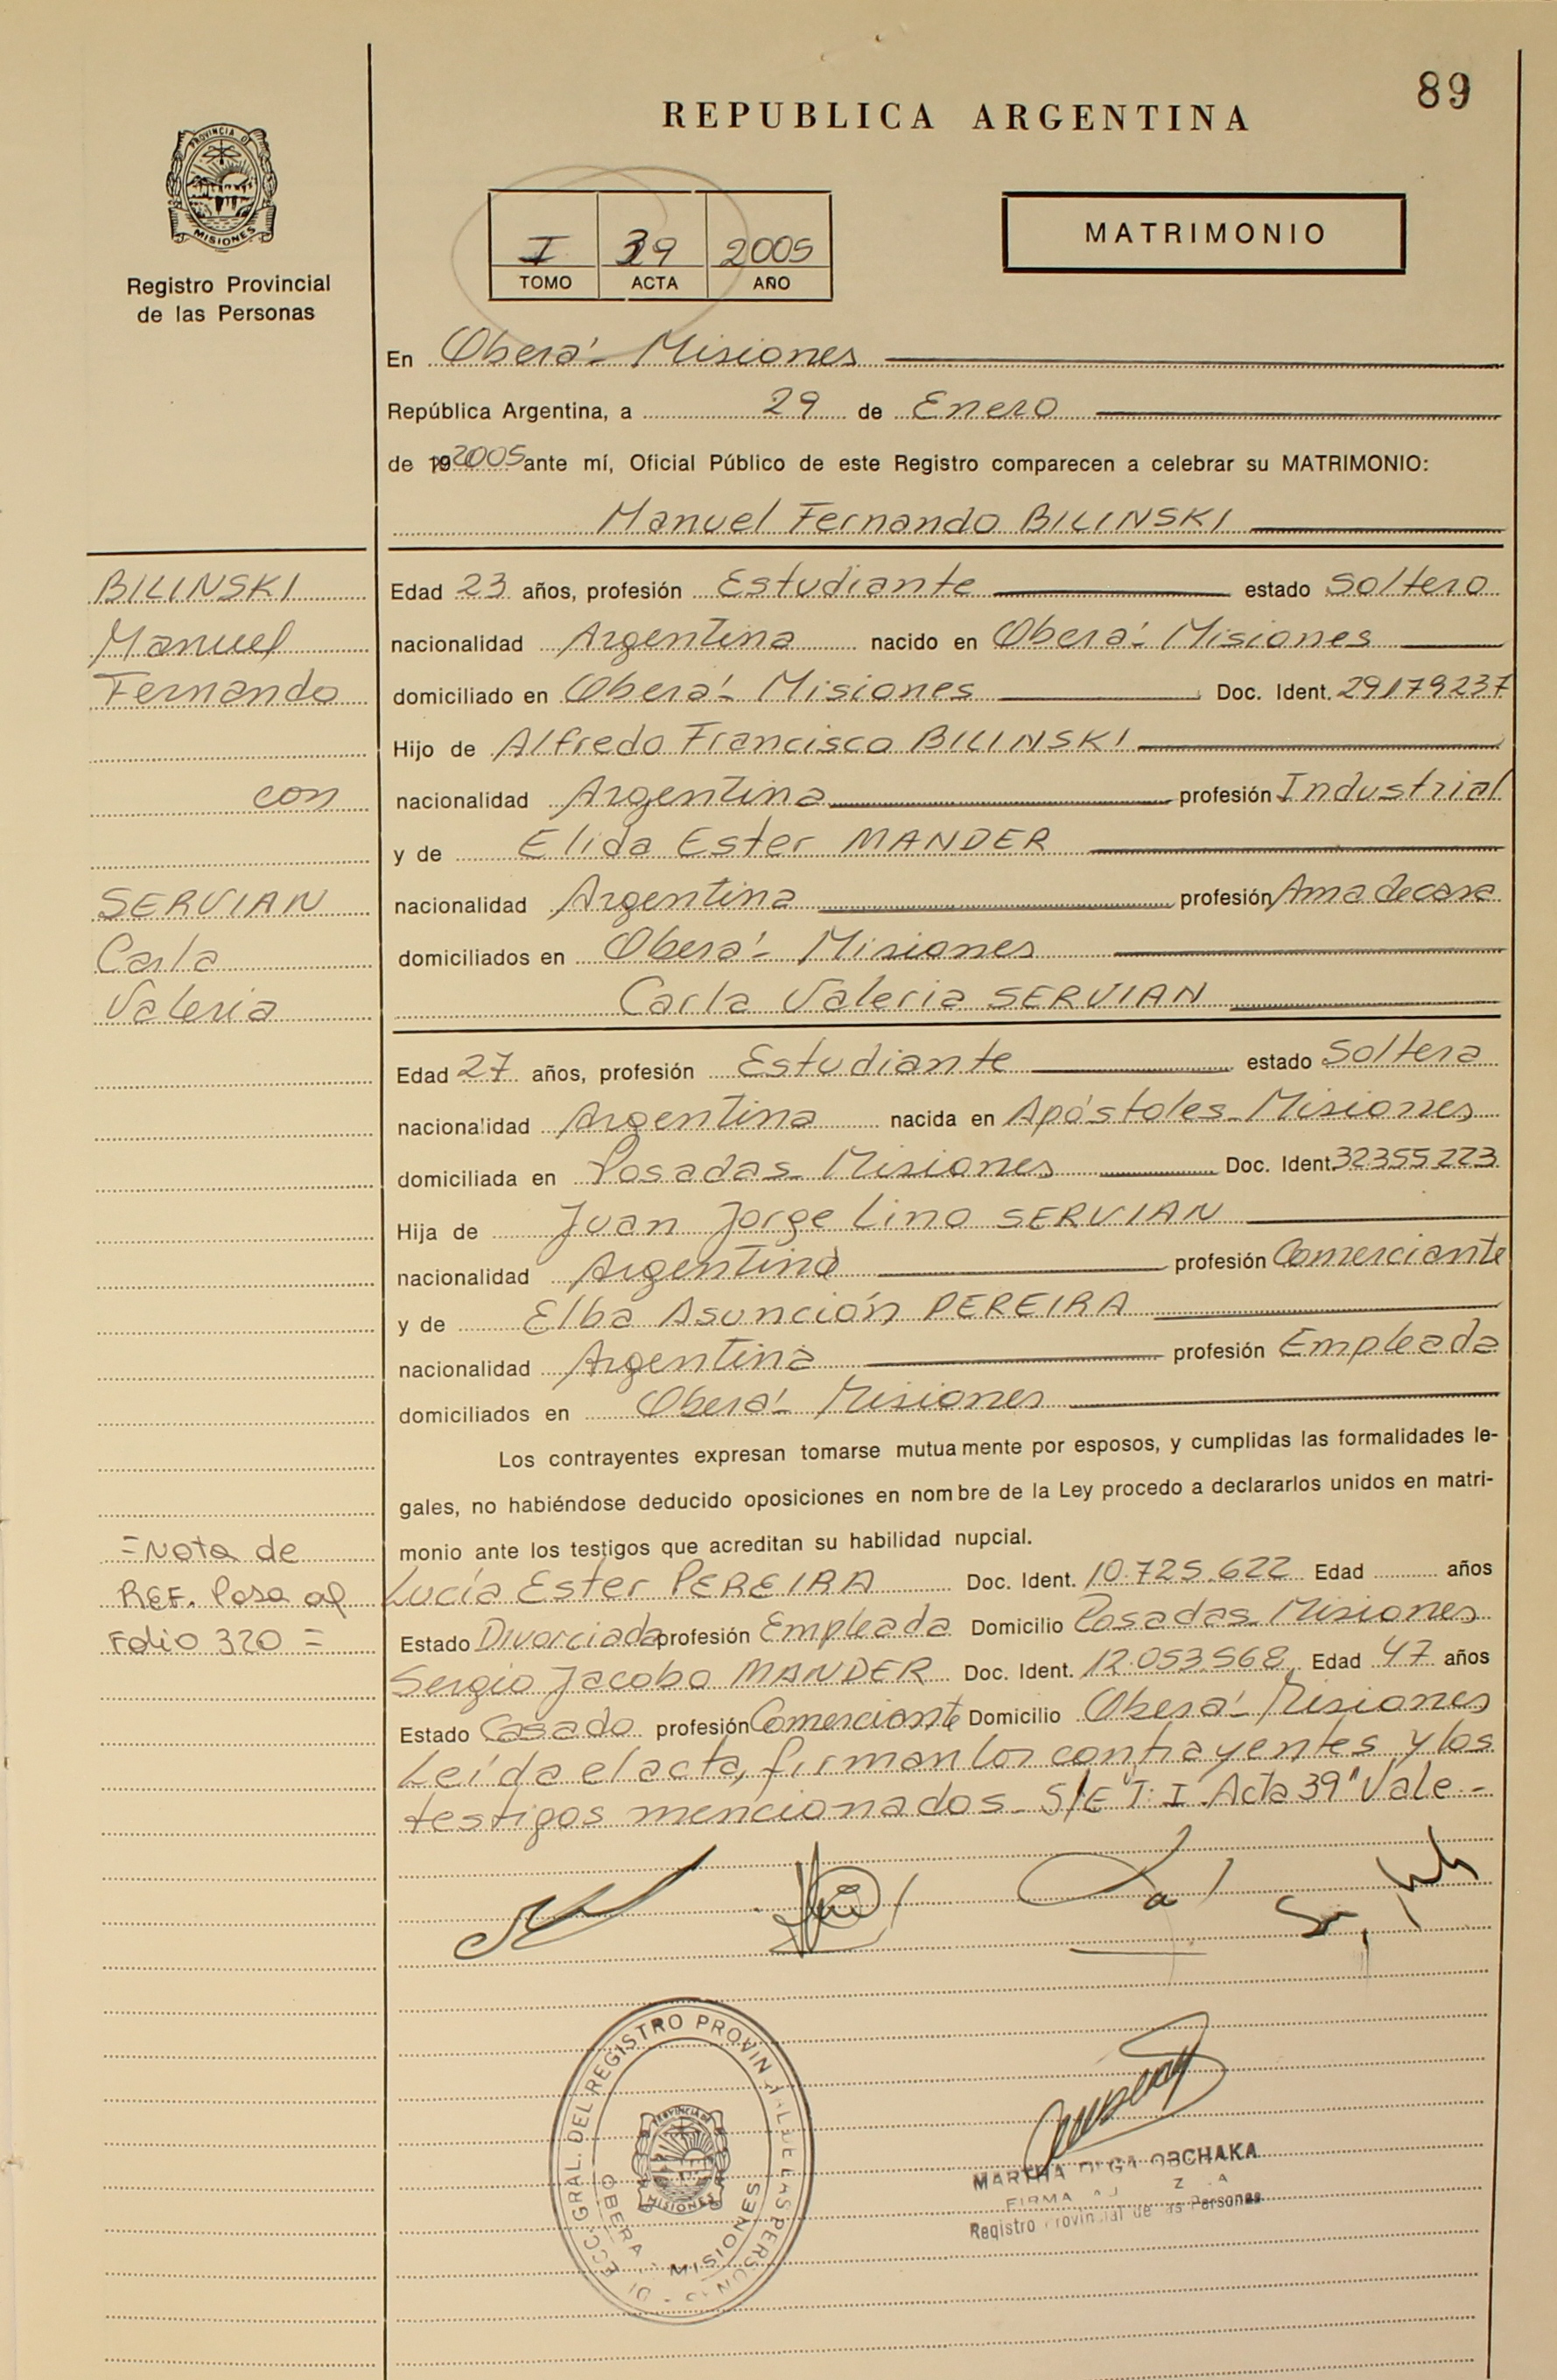 89
REPUBLICA ARGENTINA
PROVINCIA DE
MISIONES
Registro Provincial
de las Personas
I 39 2005
TOMO ACTA AÑO
MATRIMONIO
En Oberá - Misiones
República Argentina, a 29 de Enero
de 19 2005 ante mí, Oficial Público de este Registro comparecen a celebrar su MATRIMONIO:
Manuel Fernando BILINSKI
BILINSKI
Manuel
Fernando
con
SERVIAN
Carla
Valeria
Edad 23 años, profesión Estudiante estado Soltero
nacionalidad Argentina nacido en Oberá - Misiones
domiciliado en Oberá - Misiones Doc. Ident. 29179237
Hijo de Alfredo Francisco BILINSKI
nacionalidad Argentina profesión Industrial
y de Elida Ester MANDER
nacionalidad Argentina profesión Ama de casa
domiciliados en Oberá - Misiones
Carla Valeria SERVIAN
Edad 27 años, profesión Estudiante estado Soltera
nacionalidad Argentina nacida en Apóstoles - Misiones
domiciliada en Posadas - Misiones Doc. Ident. 32355223
Hija de Juan Jorge Lino SERVIAN
nacionalidad Argentina profesión Comerciante
y de Elba Asunción PEREIRA
nacionalidad Argentina profesión Empleada
domiciliados en Oberá - Misiones
Los contrayentes expresan tomarse mutuamente por esposos, y cumplidas las formalidades le-
gales, no habiéndose deducido oposiciones en nombre de la Ley procedo a declararlos unidos en matri-
monio ante los testigos que acreditan su habilidad nupcial.
= Nota de
REF. Pasa al
Folio 320 =
Lucía Ester PEREIRA Doc. Ident. 10.725.622 Edad años
Estado Divorciada profesión Empleada Domicilio Posadas - Misiones
Sergio Jacobo MANDER Doc. Ident. 12.053.568 Edad 47 años
Estado Casado profesión Comerciante Domicilio Oberá - Misiones
Leída el acta, firman los contrayentes y los
testigos mencionados - S/E T: I Acta 39" Vale -
GRAL. DEL REGISTRO PROVIN
OBERA - MISIONES
PROVINCIA DE
MISIONES
MARTHA OLGA OBCHAKA
FIRMA
Registro Provincial de las Personas